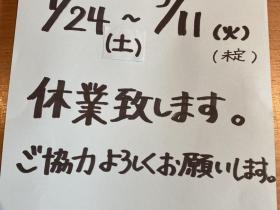 4/24 ~ 5/11 (火)
(土) (未定)
休業致します。
ご協力よろしくお願いします。